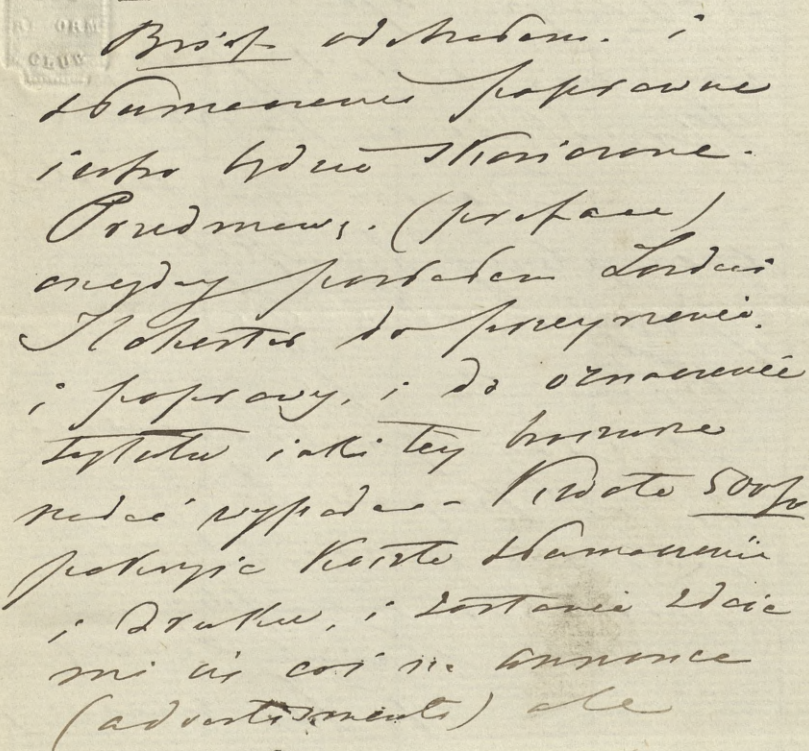 REFORM
CLUB
Brief odebrałem. i
tłumaczenie poprawne
iutro będzie skończone.
Przedmowę. (preface)
posłałem Lorda
Ilchester do przeyrzenia.
i poprawy, i do oznaczenia
tytułu iaki tey broszurze
nadać wypada – Kwota 500 fr
pokryie koszta tłumaczenia
i druku, i zostanie zdaie
mi się coś na annonce
(advertisments) ale